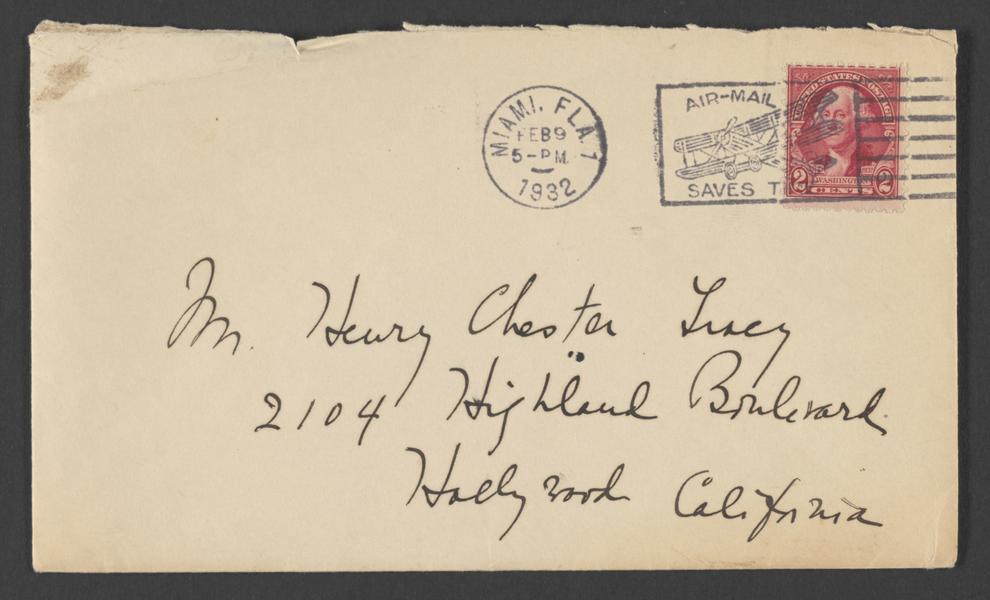 MIAMI, FLA. 1
FEB 9
5-PM
1932
AIR-MAIL
SAVES T
UNITED STATES POSTAGE
WASHINGTON
2 CENTS 2
Mr. Henry Chester Tracy
2104 Highland Boulevard
Hollywood California